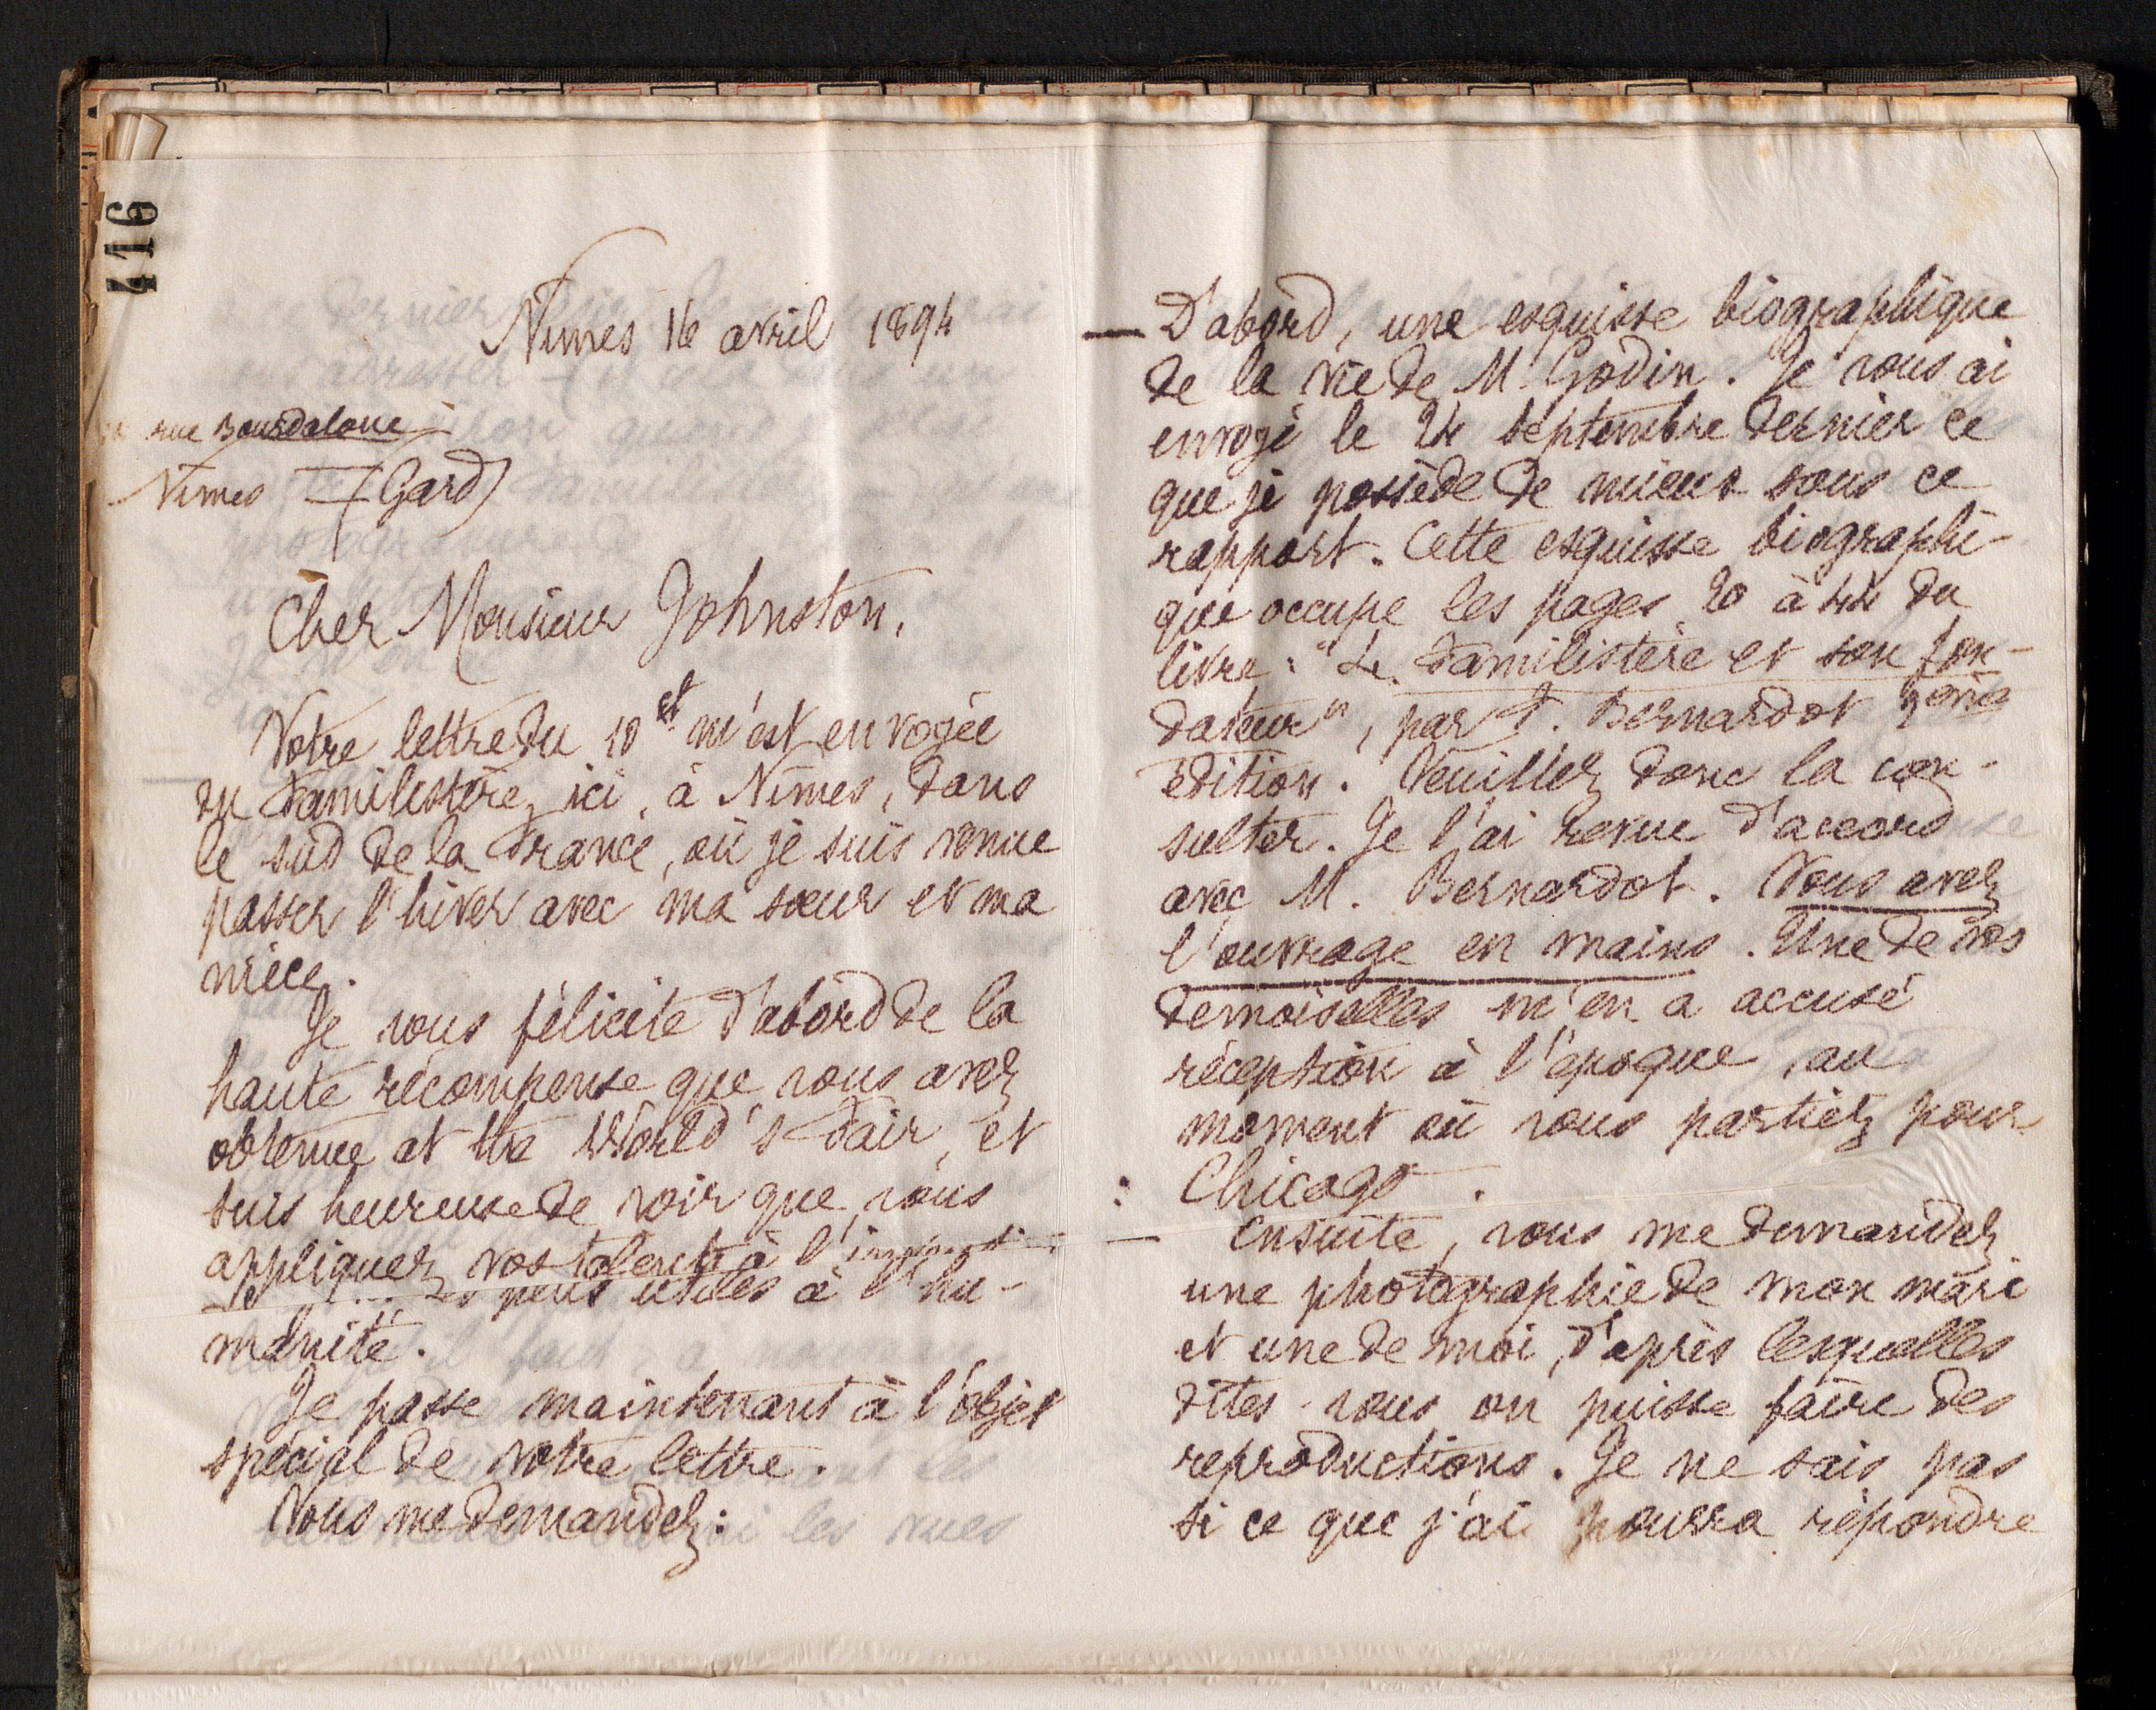 416
Nimes 16 avril 1894
rue Bourdaloue
Nimes (Gard)
Cher Monsieur Johnston,
Votre lettre du 10 ct m'est envoyée
du Familistère, ici, à Nimes, dans
le sud de la France, où je suis venue
passer l'hiver avec ma sœur et ma
nièce.
Je vous félicite d'abord de la
haute récompense que vous avez
obtenue at the World's Fair, et
suis heureuse de voir que vous
appliquez vos talents à l'
plus utiles à l'hu-
manité.
Je passe maintenant à l'objet
spécial de votre lettre.
Vous me demandez :
— D'abord, une esquisse biographique
de la vie de M. Godin. Je vous ai
envoyé le 24 septembre dernier ce
que je possède de mieux sous ce
rapport. Cette esquisse biographi-
que occupe les pages 20 à 44 du
livre : "Le Familistère et son fon-
dateur", par F. Bernardot
édition. Veuillez donc la con-
sulter. Je l'ai revue d'accord
avec M. Bernardot. Vous avez
l'ouvrage en mains. Une de vos
demoiselles m'en a accusé
réception à l'époque, au
moment où vous partiez pour
Chicago.
— Ensuite, vous me demandez
une photographie de mon mari
et une de moi, d'après lesquelles
dites-vous on puisse faire des
reproductions. Je ne sais pas
si ce que j'ai pourra répondre